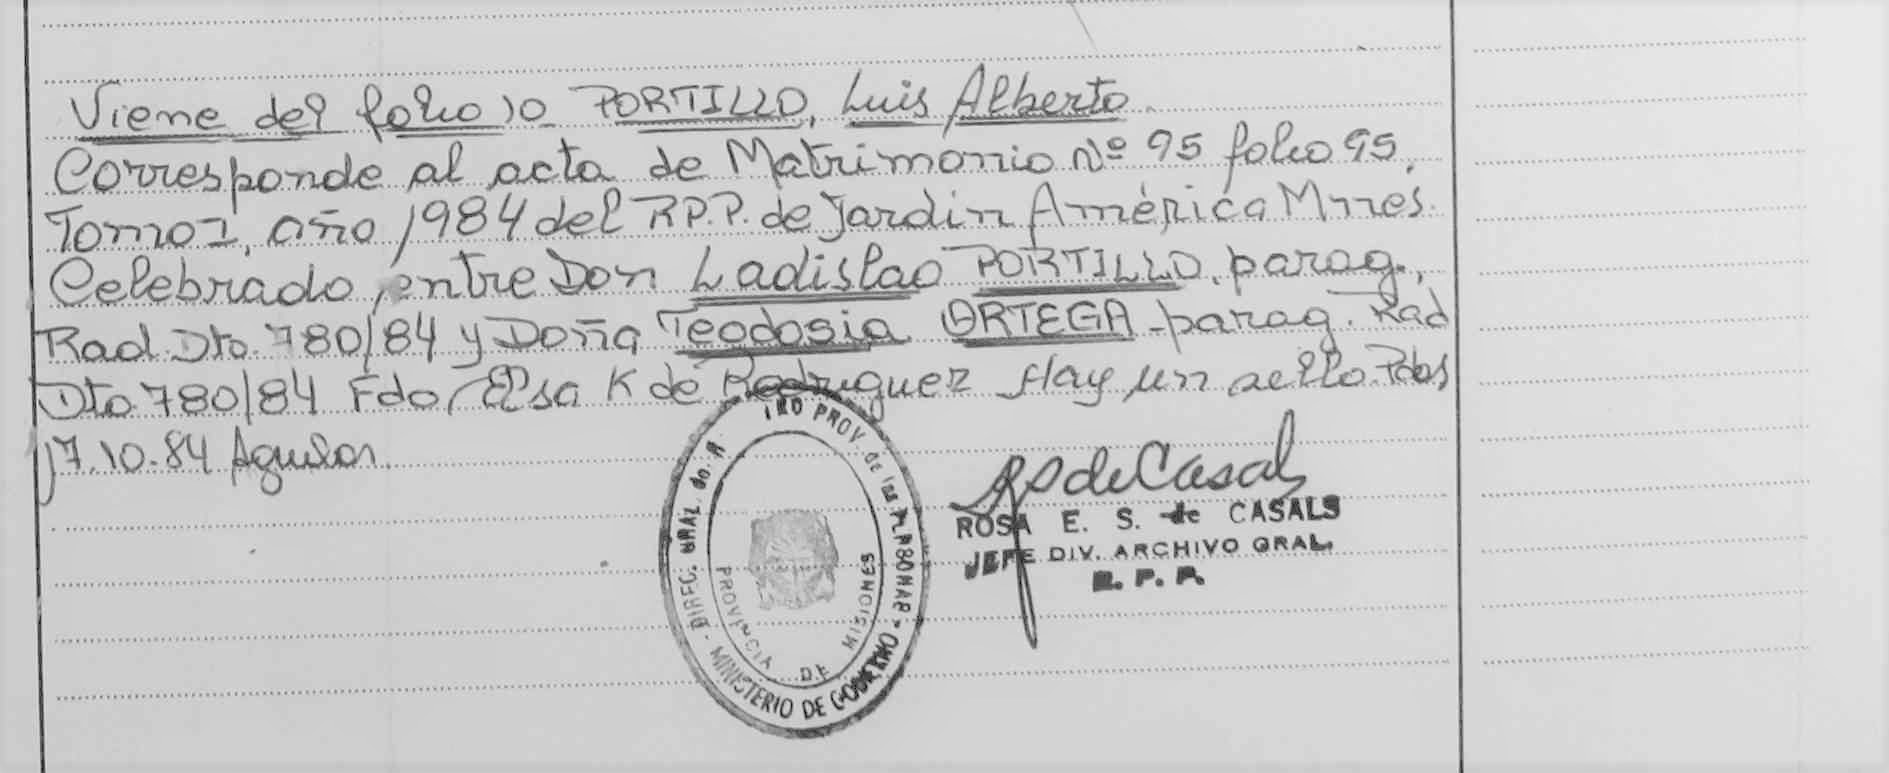 Viene del folio 10 PORTILLO, Luis Alberto
Corresponde al acta de Matrimonio Nº 95 folio 95,
Tomo I, año 1984 del R.P.P. de Jardin América Mnes.
Celebrado, entre Don Ladislao PORTILLO, parag.,
Rad. Dto. 780/84 y Doña Teodosia ORTEGA - parag. Rad
Dto 780/84 Fdo/ Elsa K de Rodriguez Hay un sello. Pdas
17.10.84 Aguilar.
PROV. DE
PROVINCIA DE MISIONES
MINISTERIO DE GOBIERNO
ROSA E. S. de CASALS
JEFE DIV. ARCHIVO GRAL.
R. P. P.